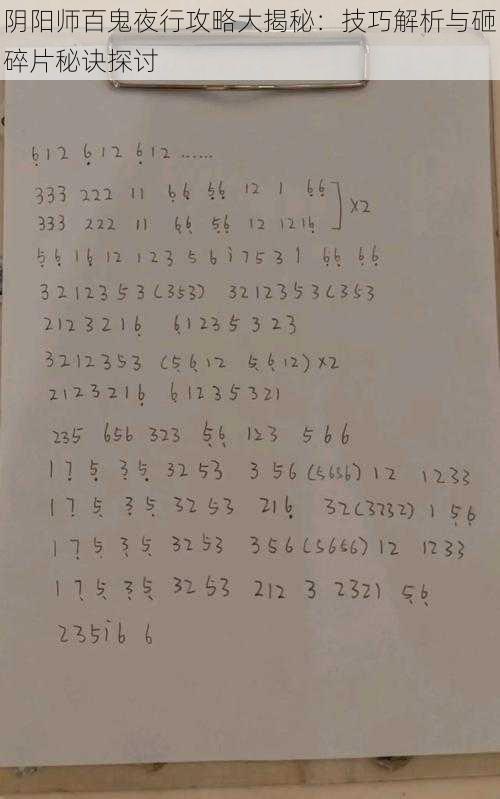 阴阳师百鬼夜行攻略大揭秘：技巧解析与砸
碎片秘诀探讨
6̣12 6̣12 6̣12 ······
333 222 11 6̣6̣ 5̣6̣ 12 1 6̣6̣
333 222 11 6̣6̣ 5̣6̣ 12 1216̣ ] ×2
5̣6̣ 16̣ 12 123 5 6 i 7 5 3 1 6̣6̣ 6̣6̣
3212353(353) 3212353(353
2123216̣ 6̣1235323
3212353 (5̣6̣12 5̣6̣12)×2
2123216̣ 6̣1235321
235 656 323 5̣6̣ 123 566
17̣ 5̣ 3̣5̣ 3253 356(5656)12 1233
17̣ 5̣ 3̣5̣ 3253 216̣ 32(3232)1 5̣6̣
17̣ 5̣ 3̣5̣ 3253 356(5656)12 1233
17̣ 5̣ 3̣5̣ 3253 212 3 2321 5̣6̣
235i6 6